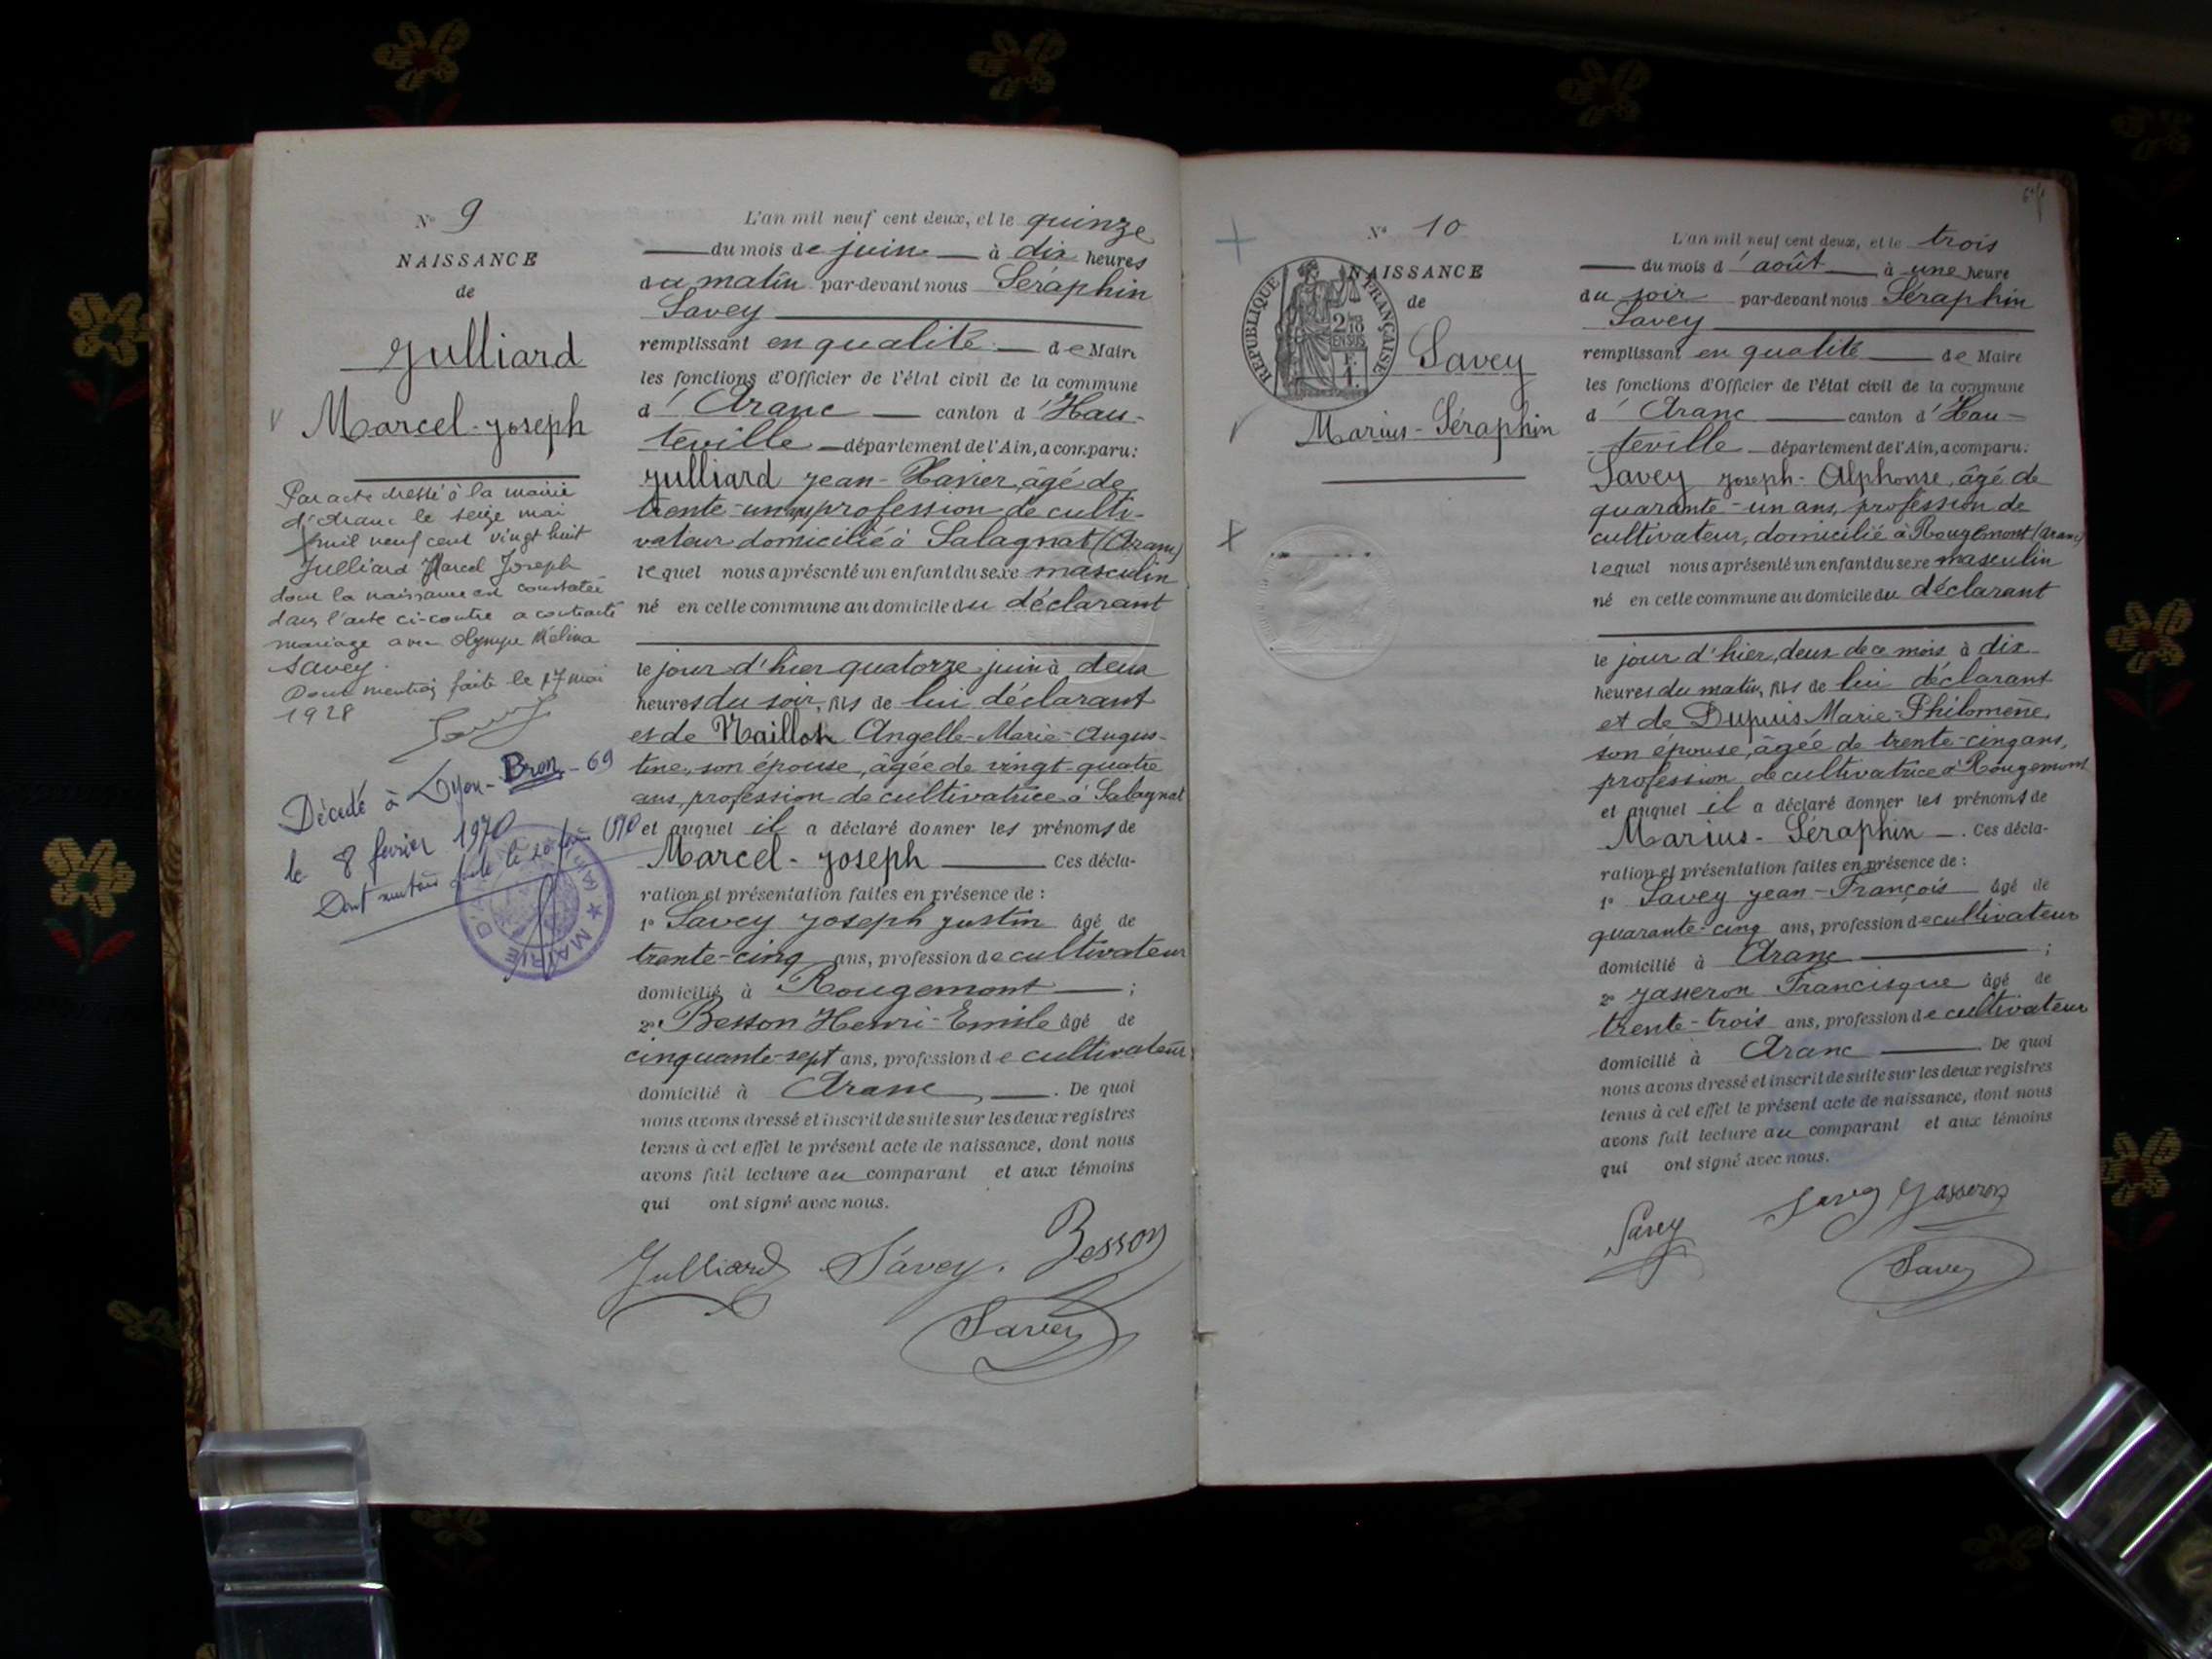 N° 9
NAISSANCE
de
Julliard
Marcel-Joseph
Par acte dressé à la mairie
d'Aranc le seize mai
mil neuf cent vingt huit
Julliard Marcel Joseph
dont la naissance est constatée
dans l'acte ci-contre a contracté
mariage avec Olympe Mélina
Savey.
Dont mention faite le 17 mai
1928
Décédé à Lyon-Bron-69
le 8 février 1970
Dont mention faite le 1970
MAIRIE
L'an mil neuf cent deux, et le quinze
du mois de juin à dix heures
du matin par-devant nous Séraphin
Savey
remplissant en qualité de Maire
les fonctions d'Officier de l'état civil de la commune
d'Aranc canton d'Hau-
teville département de l'Ain, a comparu:
Julliard Jean-Xavier, âgé de
trente-un ans profession de culti-
vateur domicilié à Salagnat (Aranc)
lequel nous a présenté un enfant du sexe masculin
né en cette commune au domicile du déclarant
le jour d'hier quatorze juin à deux
heures du soir, fils de lui déclarant
et de Maillon Angelle-Marie-Augus-
tine, son épouse, âgée de vingt-quatre
ans, profession de cultivatrice à Salagnat
et auquel il a déclaré donner les prénoms de
Marcel-Joseph Ces décla-
ration et présentation faites en présence de :
1° Savey Joseph Justin âgé de
trente-cinq ans, profession de cultivateur
domicilié à Rougemont ;
2° Besson Henri-Emile âgé de
cinquante-sept ans, profession de cultivateur
domicilié à Aranc . De quoi
nous avons dressé et inscrit de suite sur les deux registres
tenus à cet effet le présent acte de naissance, dont nous
avons fait lecture au comparant et aux témoins
qui ont signé avec nous.
Julliard Savey. Besson
Savey
N° 10
NAISSANCE
de
Savey
Marius-Séraphin
REPUBLIQUE FRANÇAISE
2/10
EN SUS
L'an mil neuf cent deux, et le trois
du mois d'août à une heure
du soir par-devant nous Séraphin
Savey
remplissant en qualité de Maire
les fonctions d'Officier de l'état civil de la commune
d'Aranc canton d'Hau-
teville département de l'Ain, a comparu:
Savey Joseph-Alphonse, âgé de
quarante-un ans, profession de
cultivateur, domicilié à Rougemont (Aranc)
lequel nous a présenté un enfant du sexe masculin
né en cette commune au domicile du déclarant
le jour d'hier, deux de ce mois à dix
heures du matin, fils de lui déclarant
et de Dupuis Marie-Philomène,
son épouse, âgée de trente-cinq ans,
profession de cultivatrice à Rougemont
et auquel il a déclaré donner les prénoms de
Marius-Séraphin . Ces décla-
ration et présentation faites en présence de :
1° Savey Jean-François âgé de
quarante-cinq ans, profession de cultivateur
domicilié à Aranc ;
2° Jasseron Francisque âgé de
trente-trois ans, profession de cultivateur
domicilié à Aranc De quoi
nous avons dressé et inscrit de suite sur les deux registres
tenus à cet effet le présent acte de naissance, dont nous
avons fait lecture au comparant et aux témoins
qui ont signé avec nous.
Savey Savey Jasseron
Savey